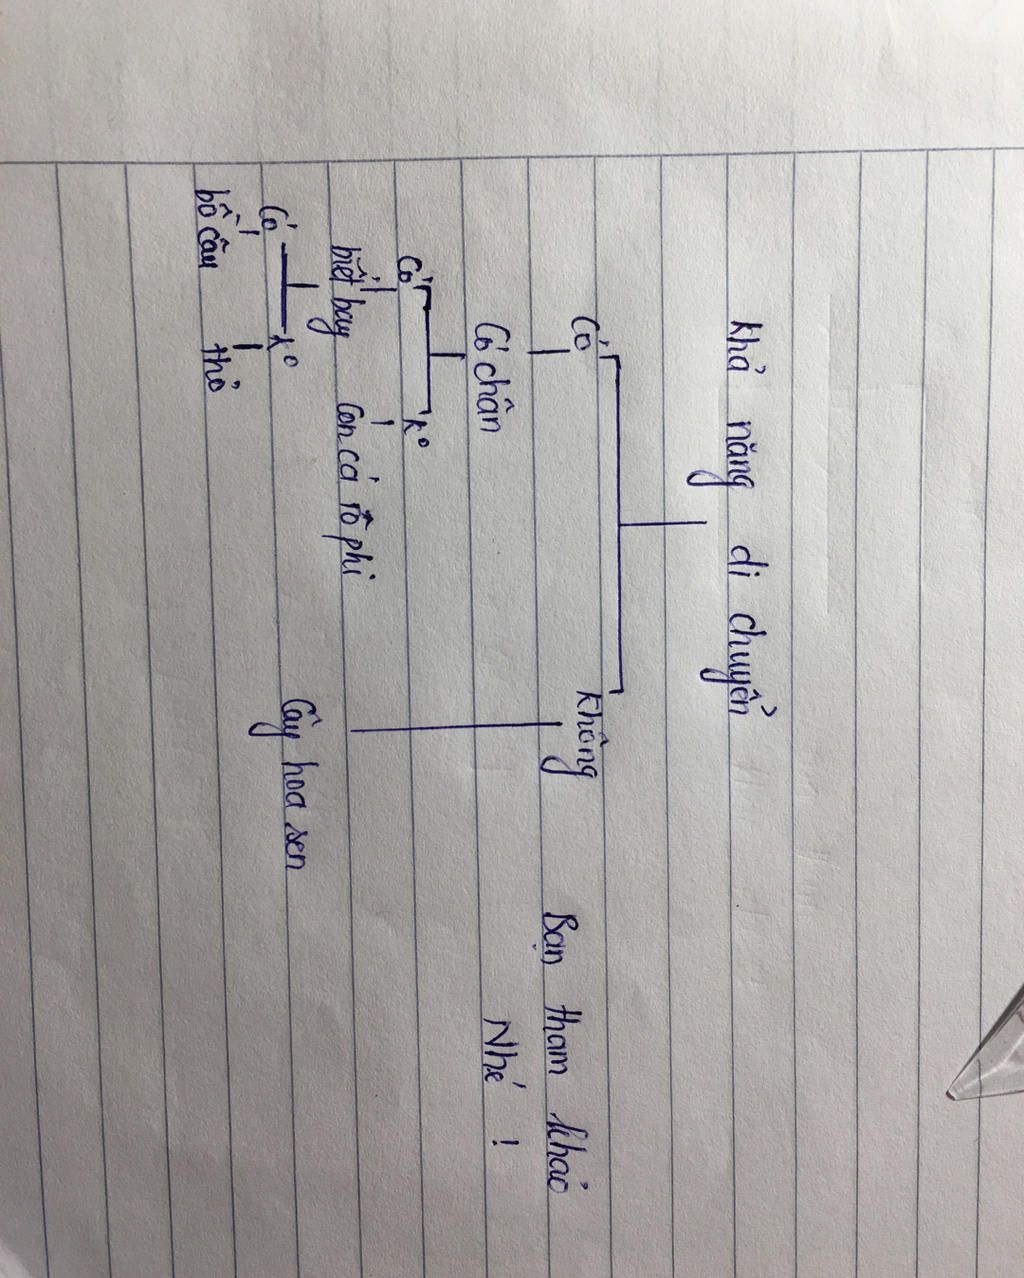 Khả năng di chuyển
Có Không
Có chân
Có kº
biết bay Con cá rô phi
Có kº
bồ câu thỏ
Cây hoa sen
Bạn tham khảo
Nhé !